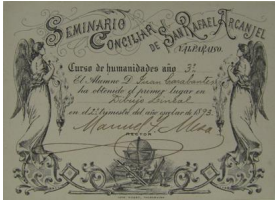 SEMINARIO
CONCILIAR DE SAN RAFAEL ARCANJEL
VALPARAISO.
Curso de humanidades año 3º
El Alumno D. Juan
ha obtenido el primer lugar en
Dibujo Lineal
en el 2º semestre del año escolar de 1893
Manuel
RECTOR